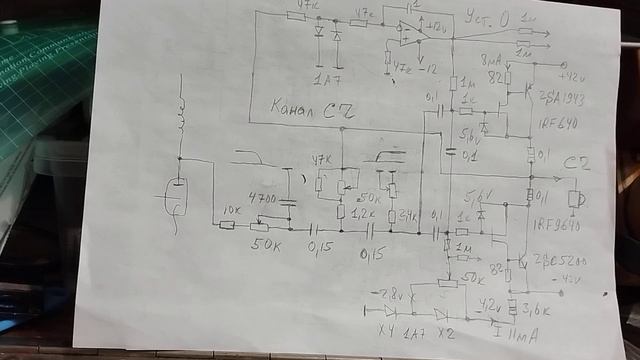 47к
47к
1
Уст. 0
1м
+12v
1м
8мА
+42v
47к
-12
1А7
1м
82
2SA1943
Канал СЧ
0,1
1к
IRF640
5,6v
0,1
0,1
47к
СЧ
4700
50к
5,6v
0,1
1,2к
2,4к
0,1
1к
IRF9640
10к
50к
0,15
0,15
1м
82
2SC5200
50к
-42v
-2,8v
-4,2v
3,6к
X4
1А7
X2
I 11мА